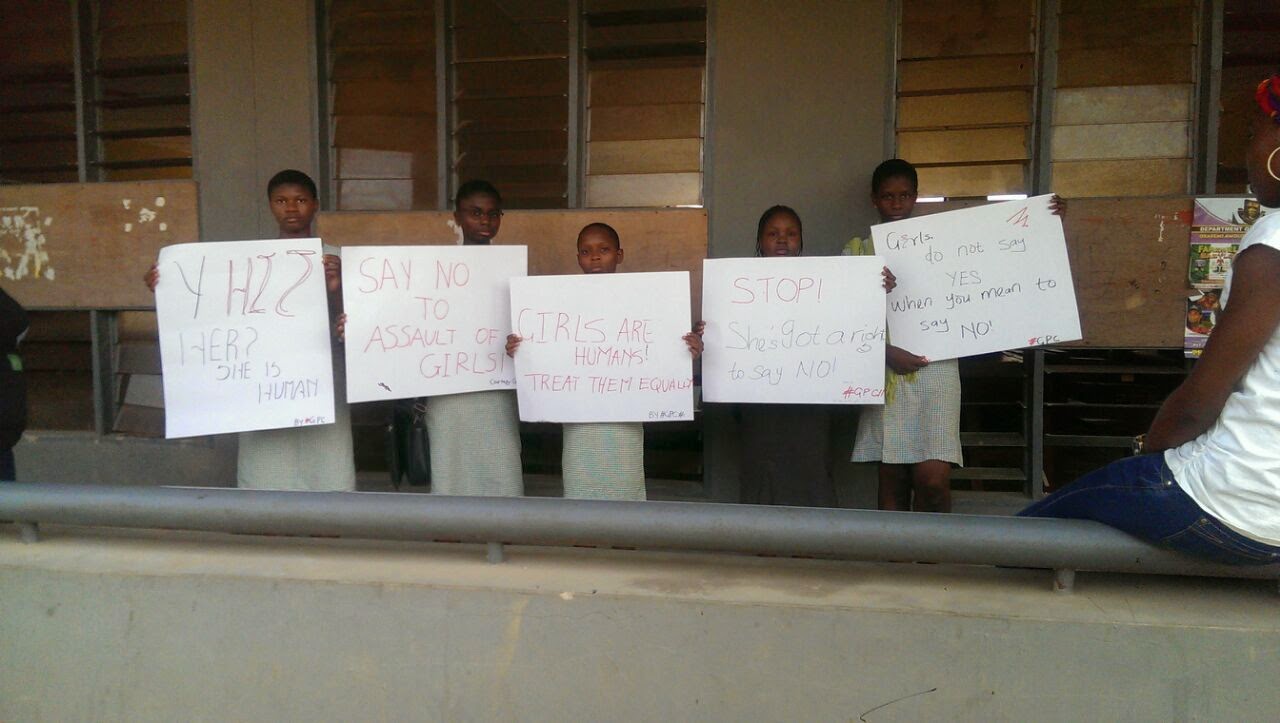 Y HIT
HER?
SHE IS
HUMAN
BY #GPC
SAY NO
TO
ASSAULT OF
GIRLS!
Courtesy G
GIRLS ARE
HUMANS!
TREAT THEM EQUALLY
BY #GPC#
STOP!
She's got a right
to say NO!
#GPC
Girls
do not say
YES
When you mean to
say NO!
#GPC
DEPARTMENT O
OBAFEMI AWOLO